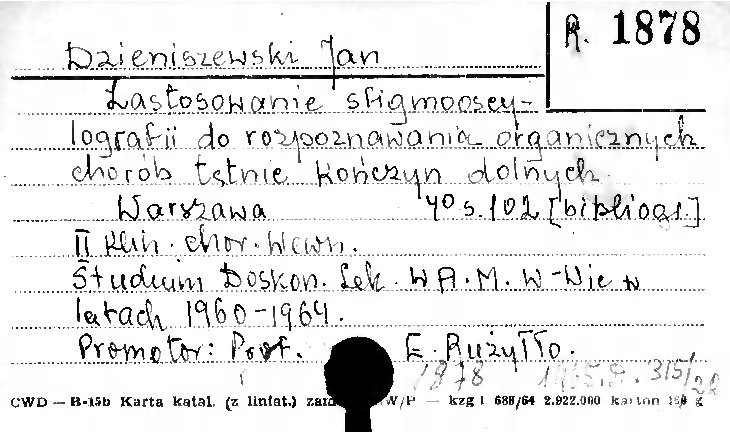 R. 1878
Dzieniszewski Jan
Zastosowanie sfigmooscy-
lografii do rozpoznawania organicznych
chorób tętnic kończyn dolnych
Warszawa 4⁰ s. 102 [bibliogr.]
II Klin. chor. wewn.
Studium Doskon. Lek. W A. M. W-wie w
latach 1960-1964.
Promotor: Prof. E. Rużyłło.
1878 1965.D. 315/22
CWD — B-15b Karta katal. (z liniat.) W/P — kzg 1 688/64 2.922.000 karton g